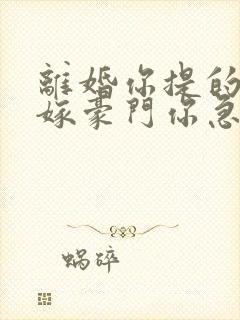 離婚你提的
嫁豪門你急
蝸碎